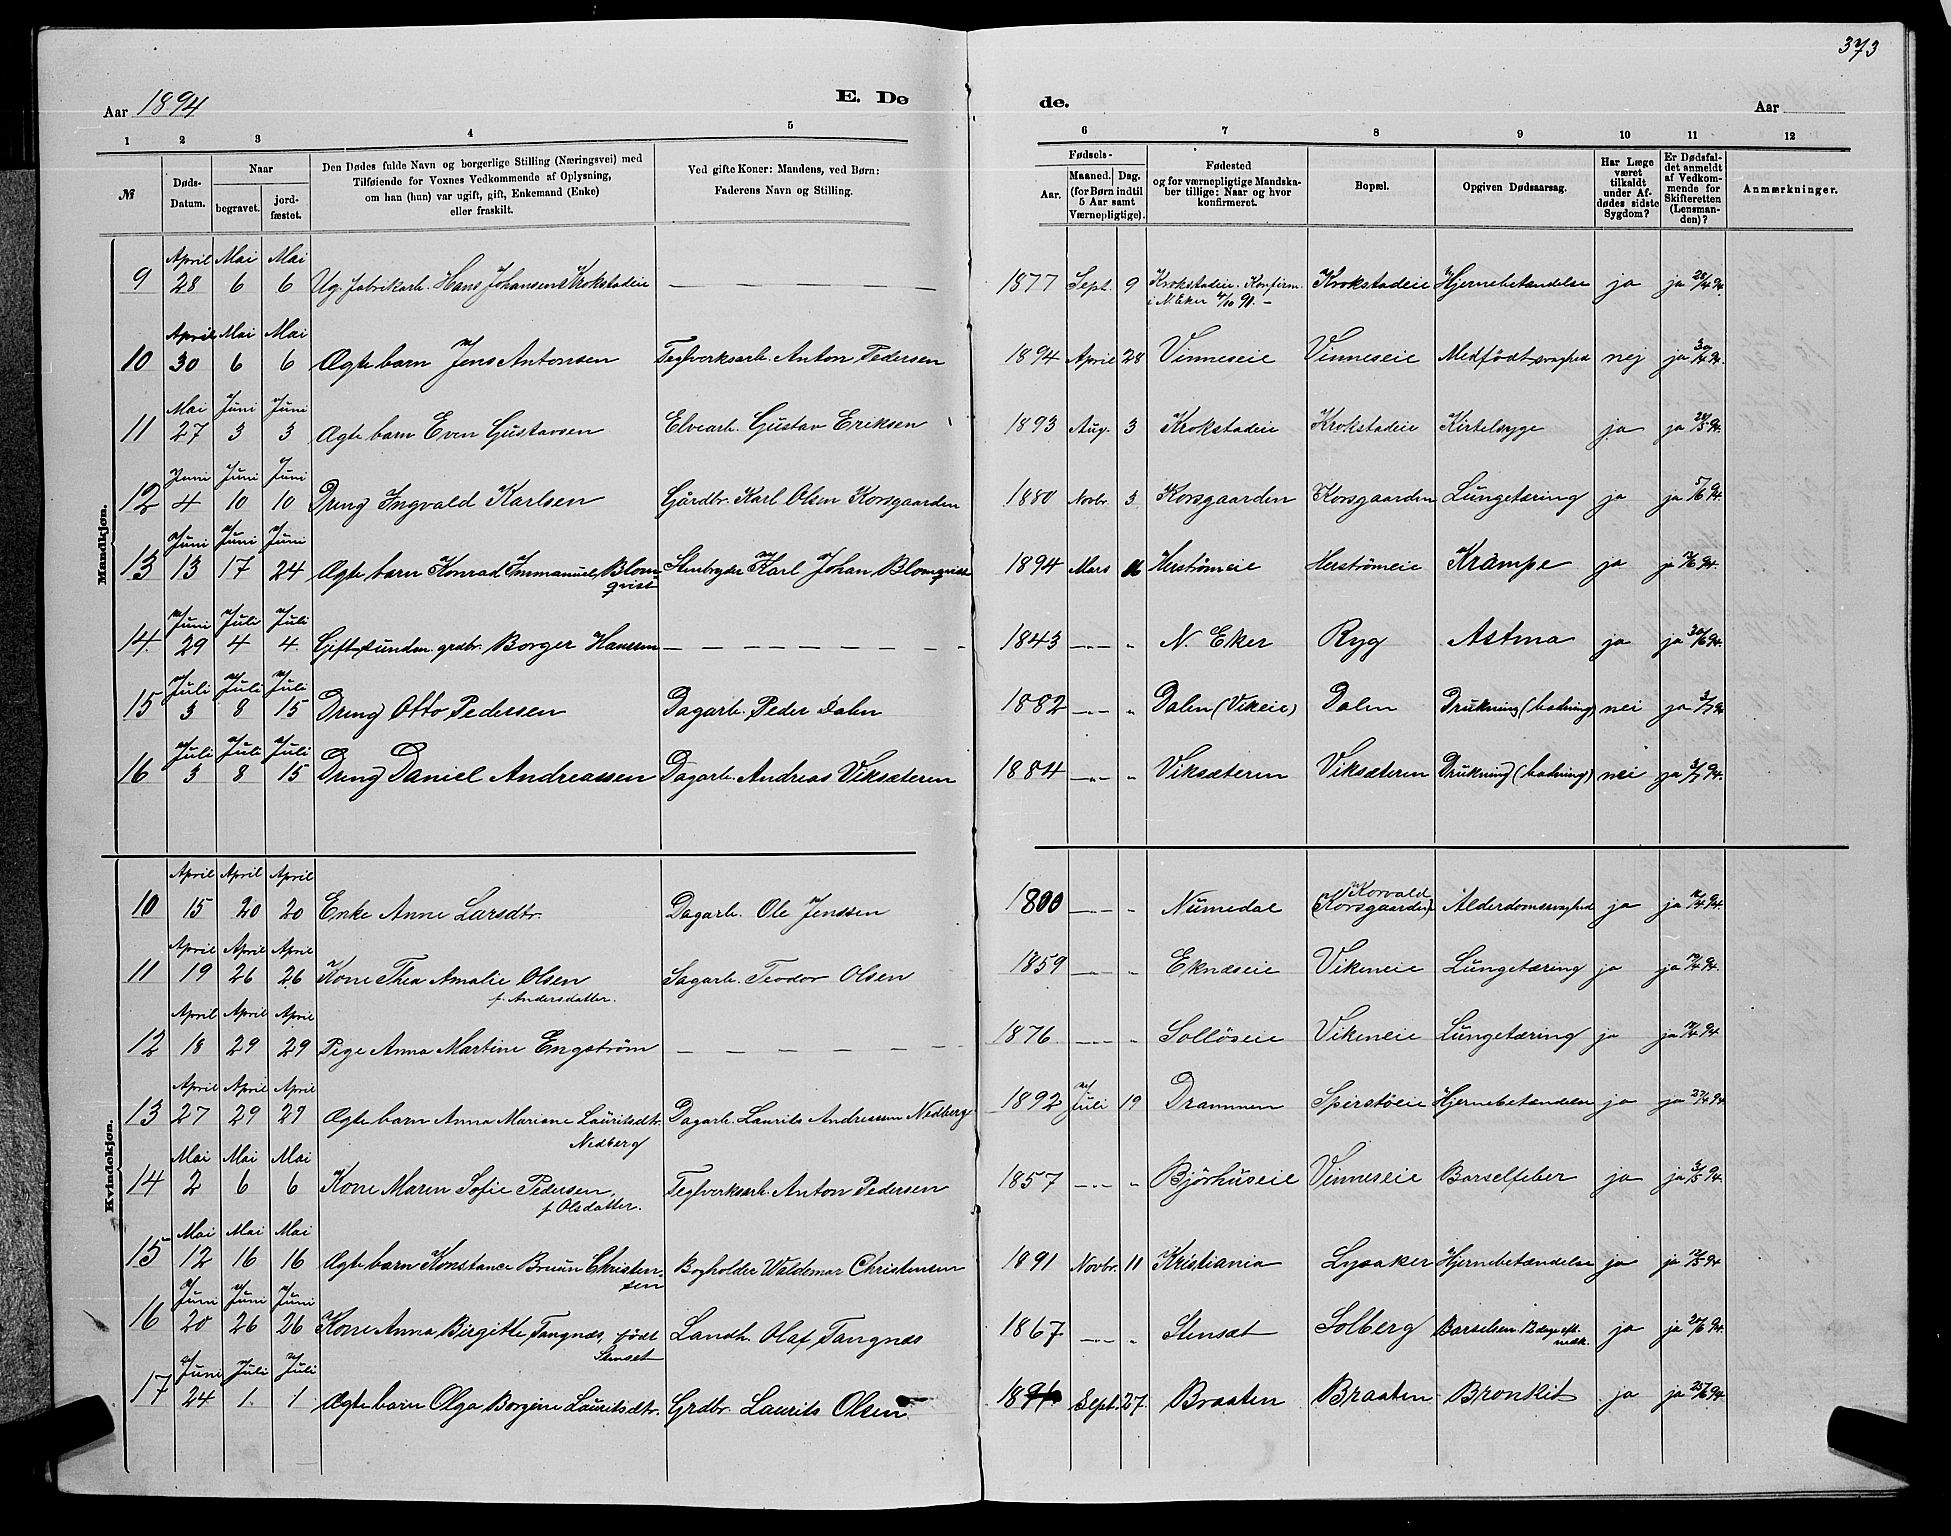 373
Aar 1894 E. Dø
de. Aar
1 2 3 4 5
6 7 8 9 10 11 12
№
Døds-Datum.
Naar
begravet.
jordfæstet.
Den Dødes fulde Navn og borgerlige Stilling (Næringsvei) med
Tilføiende for Voxnes Vedkommende af Oplysning,
om han (hun) var ugift, gift, Enkemand (Enke)
eller fraskilt.
Ved gifte Koner: Mandens, ved Børn:
Faderens Navn og Stilling.
Fødsels-
Aar.
Maaned. Dag.
(for Børn indtil
5 Aar samt
Værnepligtige).
Fødested
og for værnepligtige Mandska-
ber tillige: Naar og hvor
konfirmeret.
Bopæl.
Opgiven Dødsaarsag.
Har Læge
været
tilkaldt
under Af-
dødes sidste
Sygdom?
Er Dødsfal-
det anmeldt
af Vedkom-
mende for
Skifteretten
(Lensman-
den)?
Anmærkninger.
Mandkjøn.
April Mai Mai
9 28 6 6 Ug. fabrikarb. Hans Johansen Krokstadeie — — — — — — 1877 Sept. 9 Krokstadeie. Konfirm. Krokstadeie Hjernebetændelse ja ja 28/4 94.
i N. Eker 4/10 91. –
April Mai Mai
10 30 6 6 Ægte barn Jens Antonsen Teglverksarb. Anton Pedersen 1894 April 28 Vinneseie Vinneseie Medfödt svaghed nej ja 30/4 94.
Mai Juni Juni
11 27 3 3 Ægte barn Even Gustavsen Elvearb. Gustav Eriksen 1893 Aug. 3 Krokstadeie Krokstadeie Kirtelsyge ja ja 28/5 94.
Juni Juni Juni
12 4 10 10 Dreng Ingvald Karlsen Gårdbr. Karl Olsen Korsgaarden 1880 Novbr. 3 Korsgaarden Korsgaarden Lungetæring ja ja 5/6 94.
Juni Juni Juni
13 13 17 24 Ægte barn Konrad Immanuel Blom- Stenbryder Karl Johan Blomqvist 1894 Mars Herströmeie Herströmeie Krampe ja ja
qvist
Juni Juli Juli
14. 29 4 4. Gift grdbr. Borger Hansen — — — — — — — 1843 —„— „ N. Eker Ryg Astma ja ja 30/6 94.
Juli Juli Juli
15 3 8 15 Dreng Otto Pedersen Dagarb. Peder Dalen 1882 —„— „ Dalen (Vikeie) Dalen Drukning (badning) nei ja 3/7 94
Juli Juli Juli
16 3 8 15 Dreng Daniel Andreassen Dagarb. Andreas Viksæteren 1884 —„— „ Viksæteren Viksæteren Drukning (badning) nei ja 3/7 94.
Kvindekjøn.
April April April
10 15 20 20 Enke Anne Larsdtr. Dagarb. Ole Jenssen 1800 —„— „ Numedal Korvald (Korsgaarden) Alderdomssvaghed ja ja
April April April
11 19 26 26 Kone Thea Amalie Olsen Sagarb. Teodor Olsen 1859 —„— „ Eknæseie Vikeneie Lungetæring ja ja
f. Andersdatter.
April April April
12 18 29 29 Pige Anna Martine Engström — — — — — — 1876 —„— „ Sollöseie Vikeneie Lungetæring ja ja
April April April
13 27 29 29 Ægte barn Anna Mariane Lauritsdtr. Dagarb. Laurits Andreassen Nedberg 1892 Juli 19 Drammen Spirstöeie Hjernebetændelse ja ja 27/4 94
Nedberg
Mai Mai Mai
14 2 6 6 Kone Maren Sofie Pedersen, Teglverksarb. Anton Pedersen 1857 —„— „ Björhuseie Vinneseie Barselfeber ja ja 3/5 94.
f. Olsdatter.
Mai Mai Mai
15 12 16 16 Ægte barn Konstance Bruun Christen- Bogholder Waldemar Christensen 1891 Novbr. 11 Kristiania Lysaker Hjernebetændelse ja ja
sen
Juni Juni Juni
16 20 26 26 Kone Anna Birgitte Tangnæs født Landh. Olaf Tangnæs 1867 —„— „ Stensæt Solberg Barselsen. 12 dage eft. ja ja 20/6 94.
Stenset
Juni Juli Juli
17 24 1. 1 Ægte barn Olga Borgine Lauritsdtr. Grdbr. Laurits Olsen 18 Sept. 27 Braaten Braaten Bronkit ja ja 25/6 94.